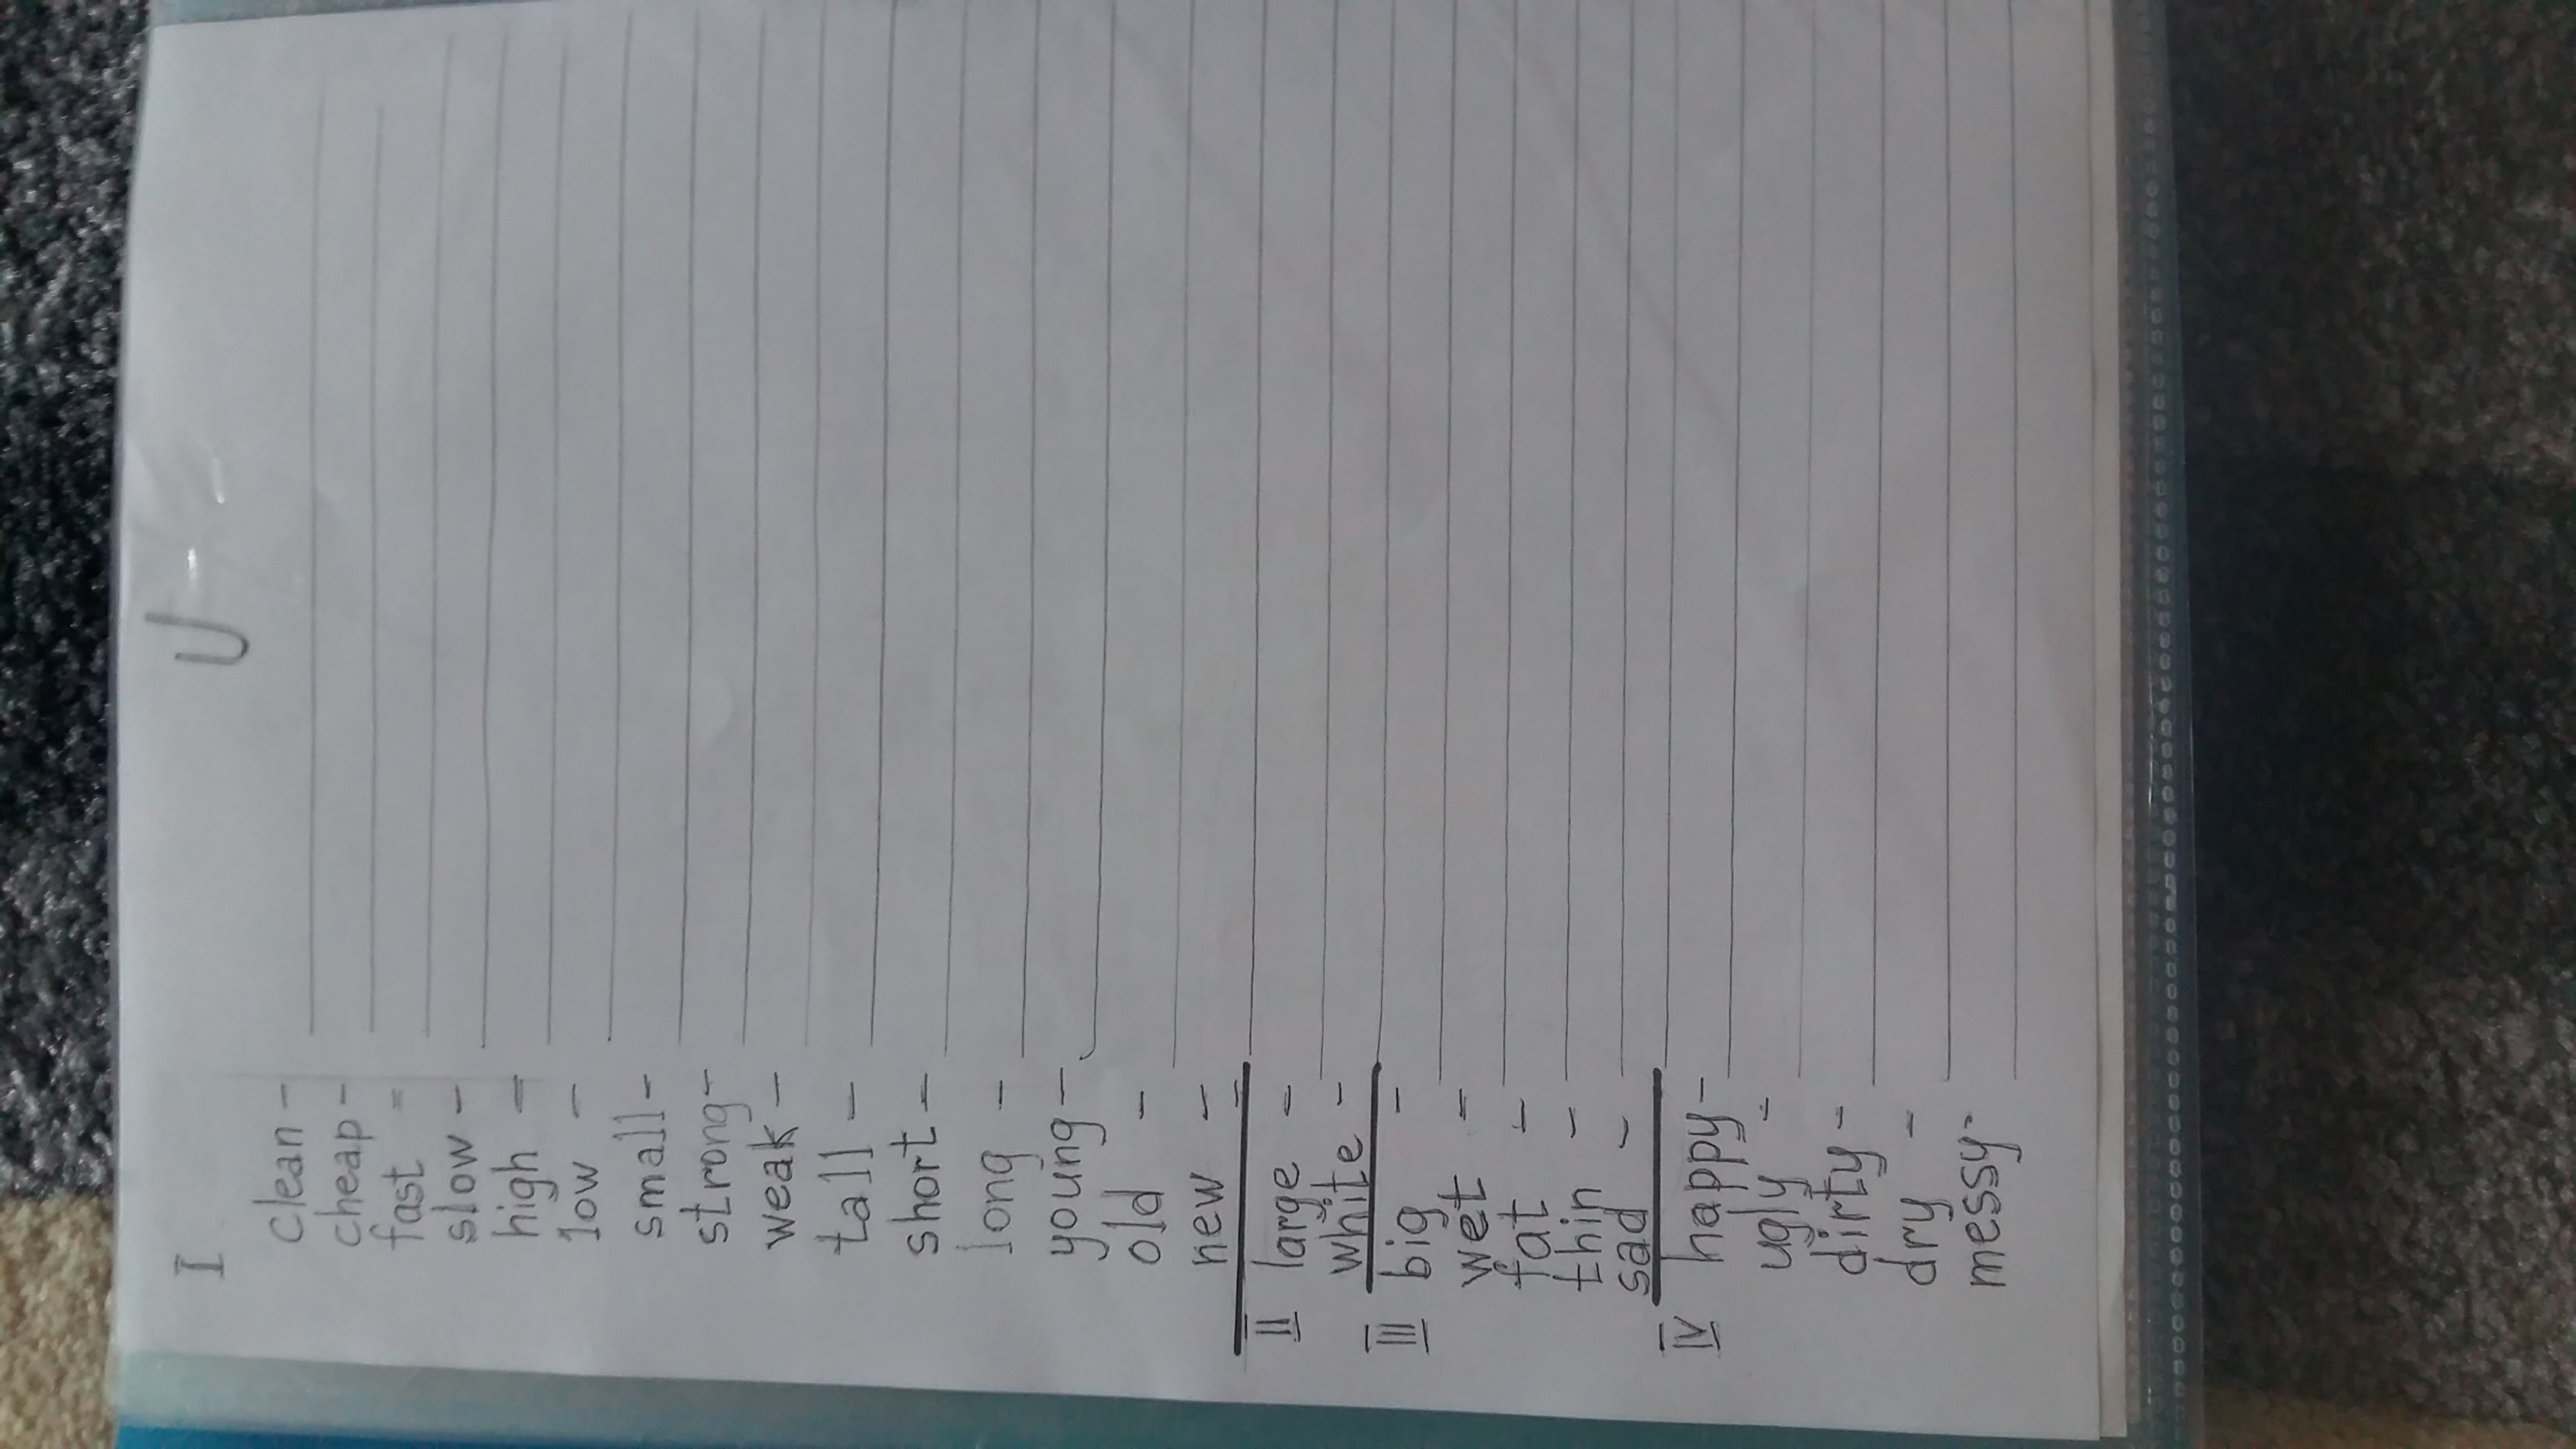 U
I
clean -
cheap -
fast =
slow -
high =
low -
small -
strong -
weak -
tall -
short -
long -
young -
old -
new -
II large -
white -
III big -
wet -
fat -
thin -
sad -
IV happy -
ugly -
dirty -
dry -
messy -